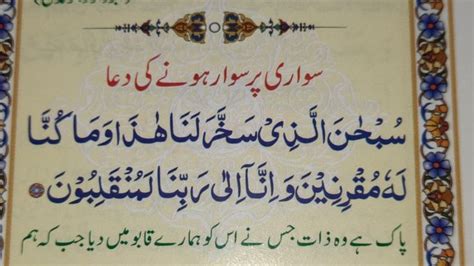 سواری پر سوار ہونے کی دعا
سُبْحٰنَ الَّذِیْ سَخَّرَ لَنَا هٰذَا وَمَا كُنَّا
لَهٗ مُقْرِنِیْنَ وَاِنَّاۤ اِلٰی رَبِّنَا لَمُنْقَلِبُوْنَ
پاک ہے وہ ذات جس نے اس کو ہمارے قابو میں دیا جب کہ ہم